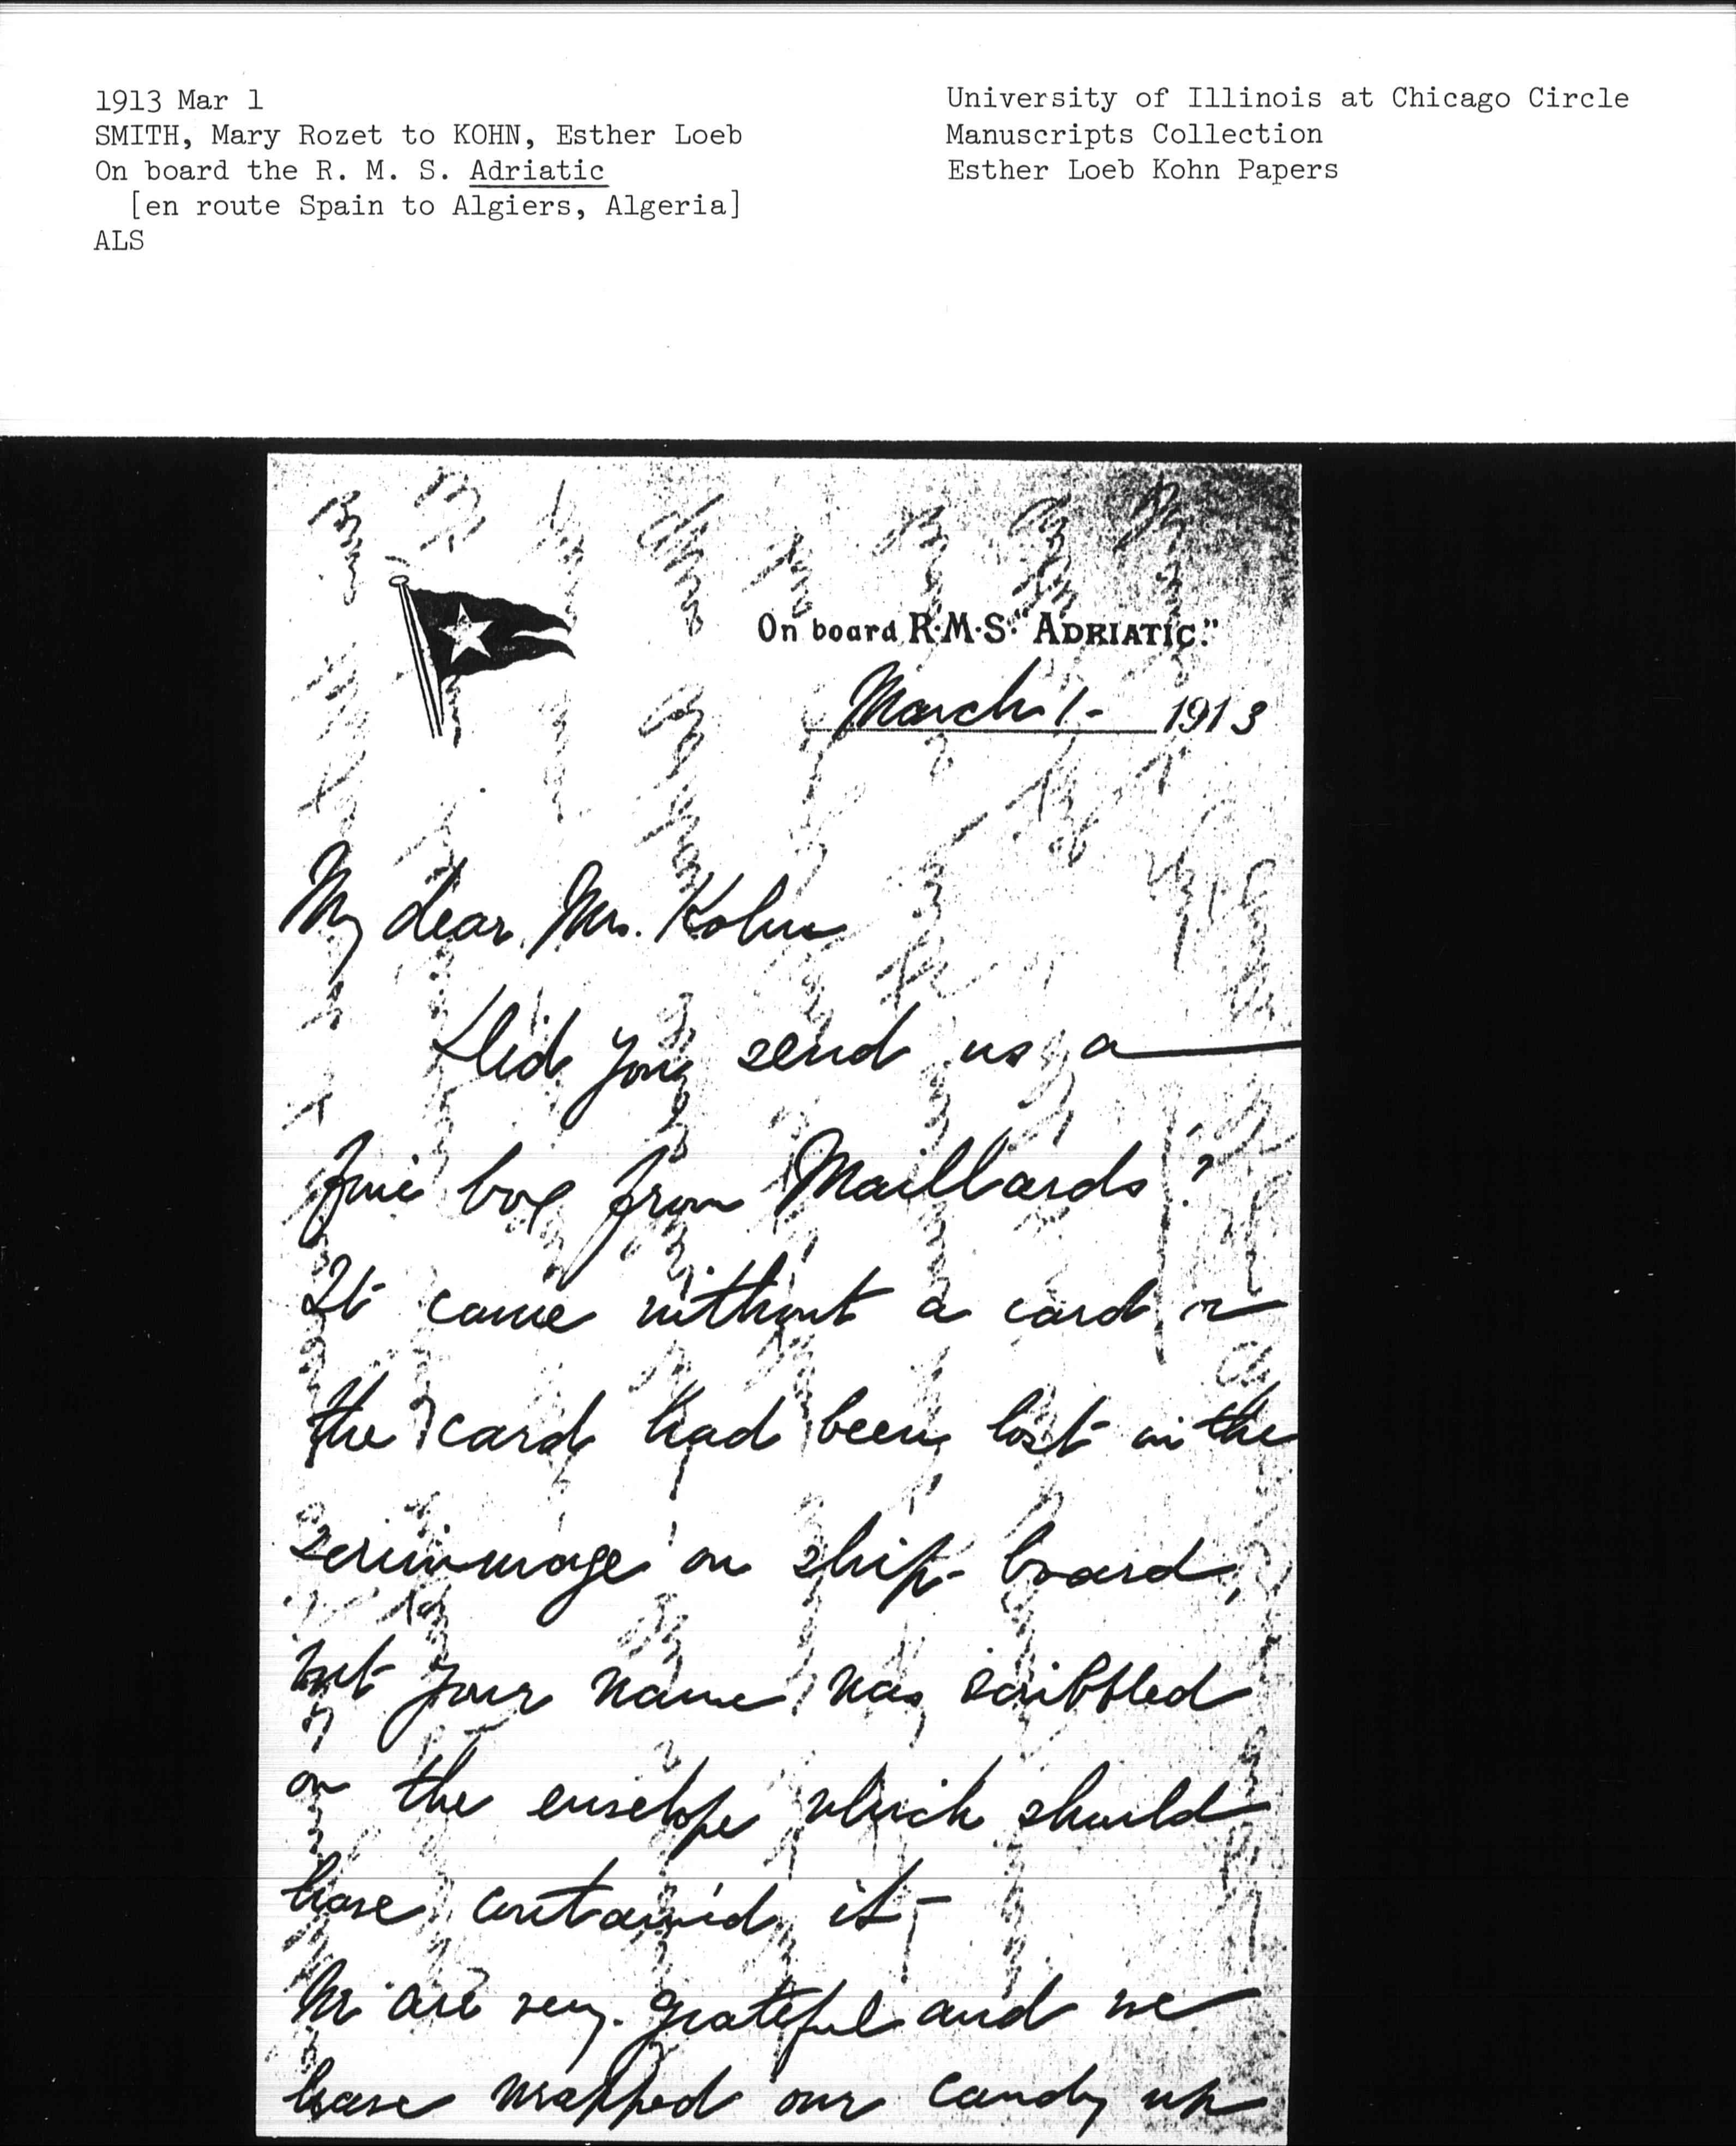 1913 Mar 1
SMITH, Mary Rozet to KOHN, Esther Loeb
On board the R. M. S. Adriatic
[en route Spain to Algiers, Algeria]
ALS
University of Illinois at Chicago Circle
Manuscripts Collection
Esther Loeb Kohn Papers
On board R·M·S· "ADRIATIC."
March 1 - 1913
My dear Mrs. Kohn
Did you send us a
fine box from Maillards?
It came without a card or
the card had been lost in the
scrimmage on ship-board,
but your name was scribbled
on the envelope which should
have contained it -
We are very grateful and we
have wrapped our candy up